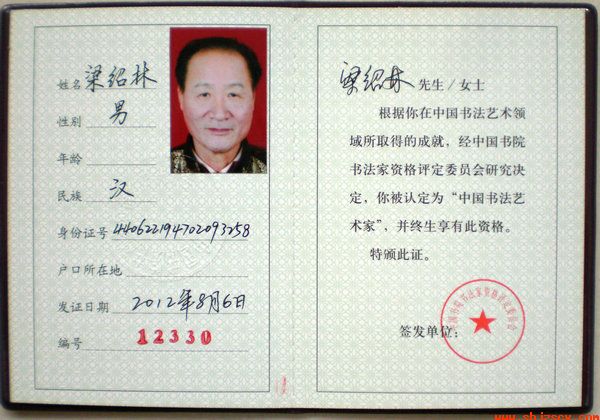 姓名 梁绍林
性别 男
年龄
民族 汉
身份证号 440622194702093758
户口所在地
发证日期 2012年8月6日
编号 12330
梁绍林 先生／女士
根据你在中国书法艺术领
域所取得的成就，经中国书院
书法家资格评定委员会研究决
定，你被认定为“中国书法艺
术家”，并终生享有此资格。
特颁此证。
签发单位：
中国书院书法家资格评定委员会